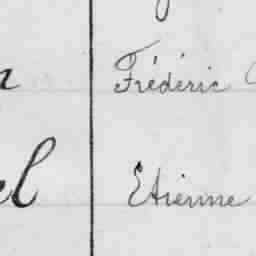 Frédéric
Etienne